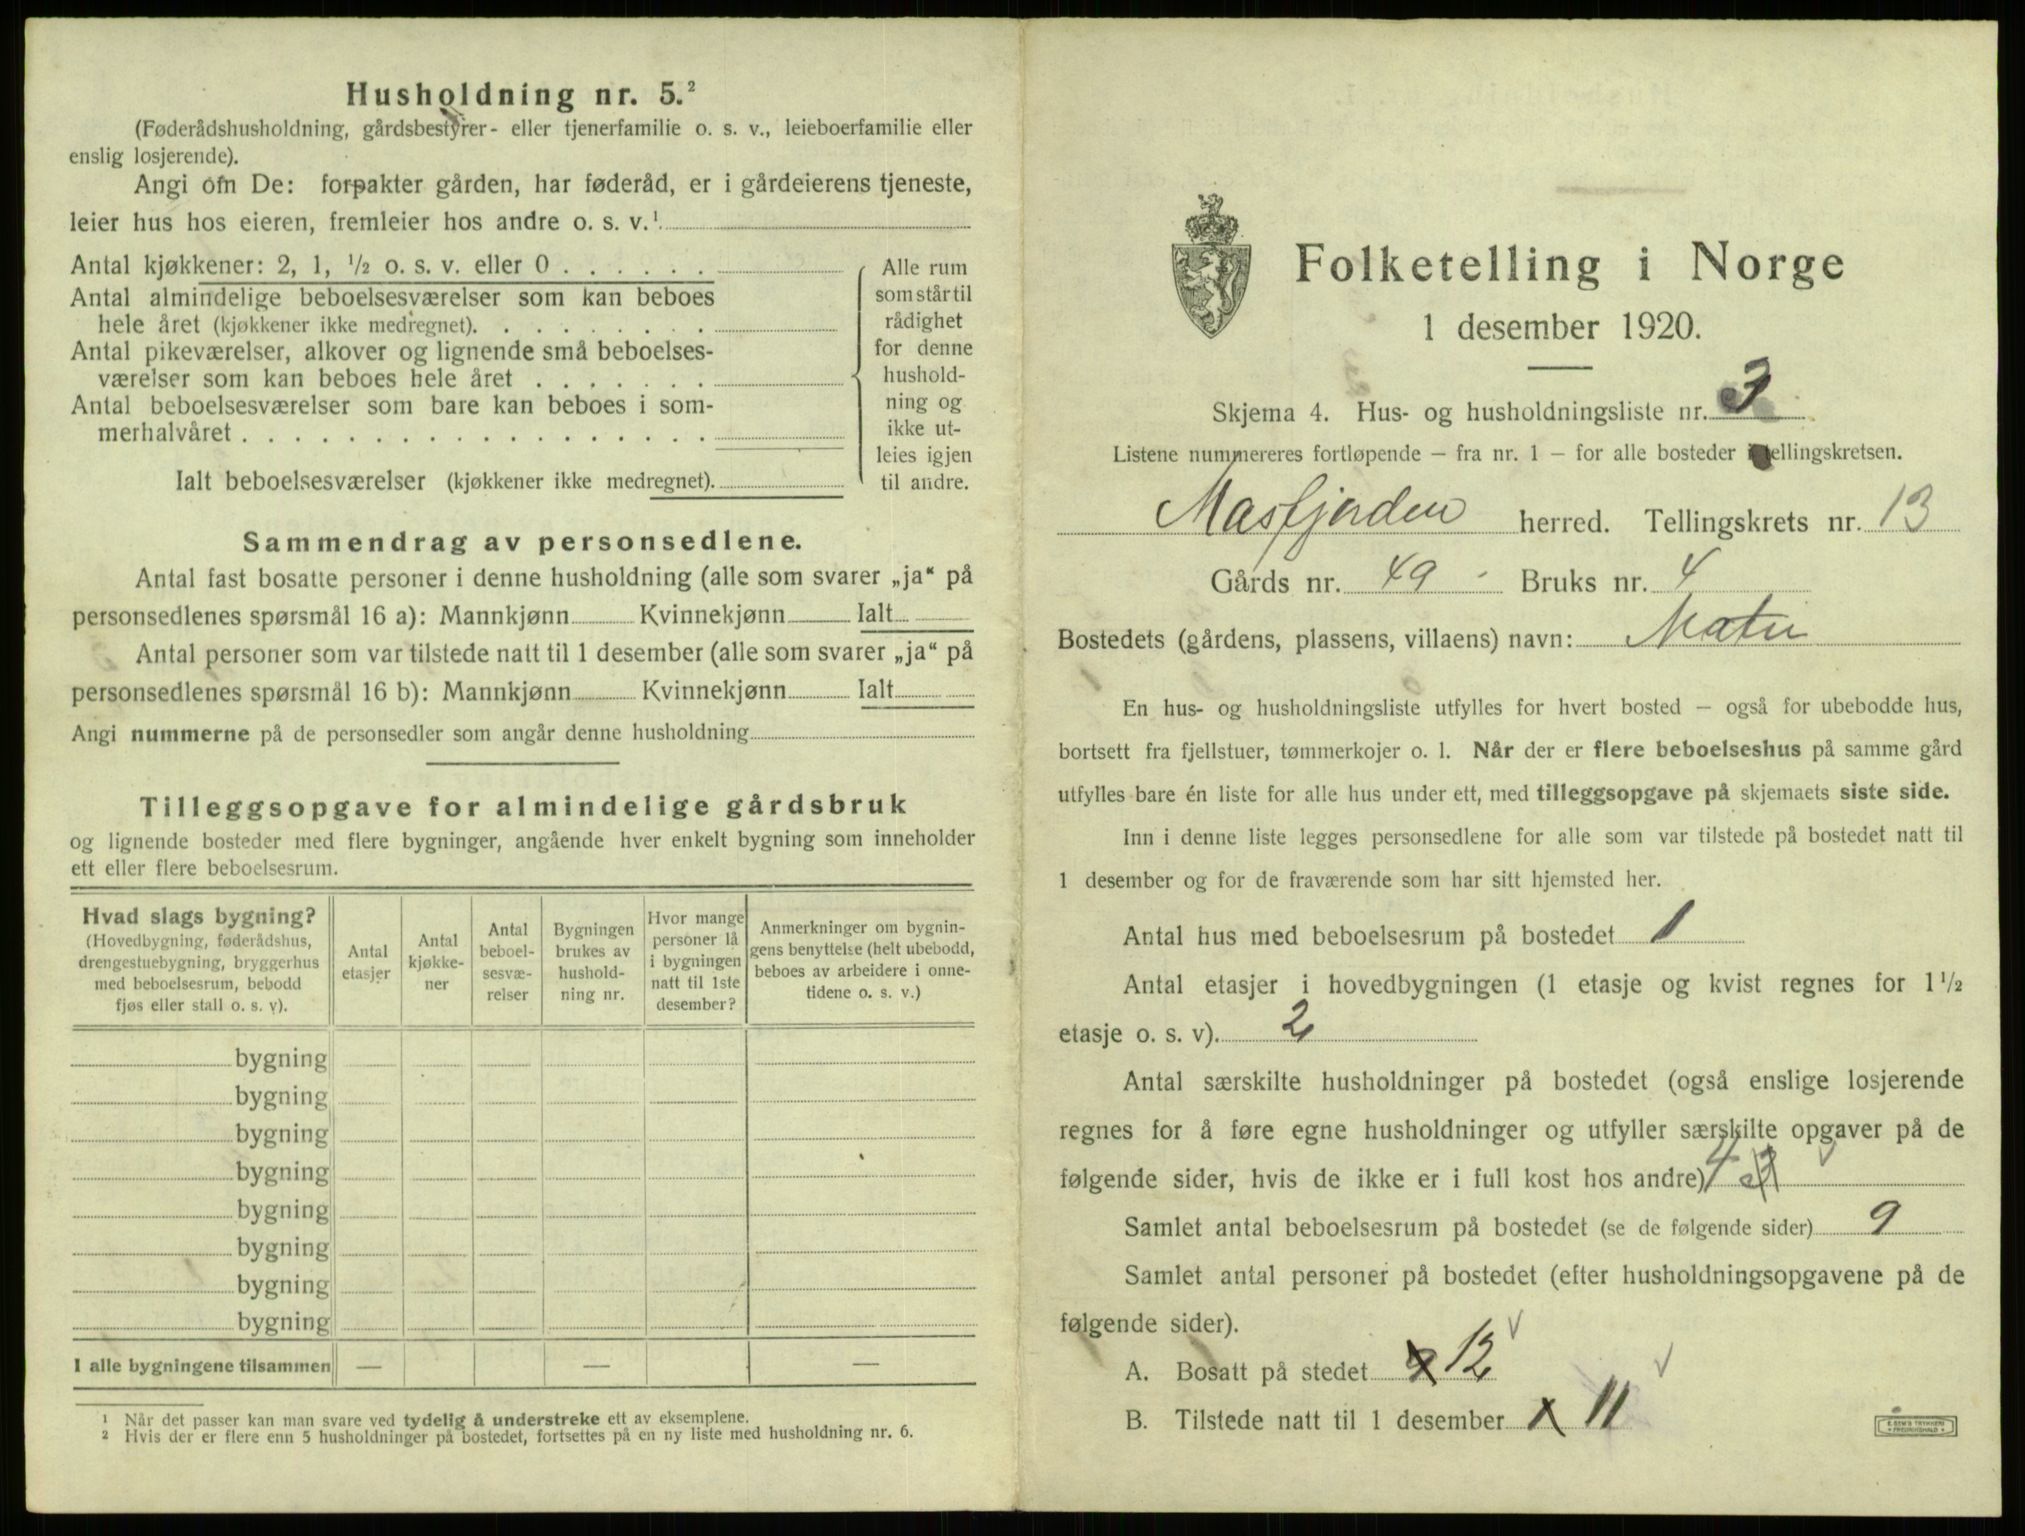 Husholdning nr. 5.²
(Føderådshusholdning, gårdsbestyrer- eller tjenerfamilie o. s. v., leieboerfamilie eller
enslig losjerende).
Angi om De: forpakter gården, har føderåd, er i gårdeierens tjeneste,
leier hus hos eieren, fremleier hos andre o. s. v.¹
Antal kjøkkener: 2, 1, ½ o. s. v. eller 0
Antal almindelige beboelsesværelser som kan beboes
hele året (kjøkkener ikke medregnet).
Antal pikeværelser, alkover og lignende små beboelses-
værelser som kan beboes hele året
Antal beboelsesværelser som bare kan beboes i som-
merhalvåret
Ialt beboelsesværelser (kjøkkener ikke medregnet).
Alle rum
som står til
rådighet
for denne
hushold-
ning og
ikke ut-
leies igjen
til andre.
Sammendrag av personsedlene.
Antal fast bosatte personer i denne husholdning (alle som svarer „ja“ på
personsedlenes spørsmål 16 a): Mannkjønn Kvinnekjønn Ialt
Antal personer som var tilstede natt til 1 desember (alle som svarer „ja“ på
personsedlenes spørsmål 16 b): Mannkjønn Kvinnekjønn Ialt
Angi nummerne på de personsedler som angår denne husholdning
Tilleggsopgave for almindelige gårdsbruk
og lignende bosteder med flere bygninger, angående hver enkelt bygning som inneholder
ett eller flere beboelsesrum.
Hvad slags bygning?
(Hovedbygning, føderådshus,
drengestuebygning, bryggerhus
med beboelsesrum, bebodd
fjøs eller stall o. s. v).
Antal
etasjer
Antal
kjøkke-
ner
Antal
beboel-
sesvæ-
relser
Bygningen
brukes av
hushold-
ning nr.
Hvor mange
personer lå
i bygningen
natt til 1ste
desember?
Anmerkninger om bygnin-
gens benyttelse (helt ubebodd,
beboes av arbeidere i onne-
tidene o. s. v.)
bygning
bygning
bygning
bygning
bygning
bygning
bygning
bygning
I alle bygningene tilsammen — — —
¹ Når det passer kan man svare ved tydelig å understreke ett av eksemplene.
² Hvis der er flere enn 5 husholdninger på bostedet, fortsettes på en ny liste med husholdning nr. 6.
Folketelling i Norge
1 desember 1920.
Skjema 4. Hus- og husholdningsliste nr. 3
Listene nummereres fortløpende — fra nr. 1 — for alle bosteder i tellingskretsen.
Masfjorden herred. Tellingskrets nr. 13
Gårds nr. 49 - Bruks nr. 4
Bostedets (gårdens, plassens, villaens) navn: Matre
En hus- og husholdningsliste utfylles for hvert bosted — også for ubebodde hus,
bortsett fra fjellstuer, tømmerkojer o. l. Når der er flere beboelseshus på samme gård
utfylles bare én liste for alle hus under ett, med tilleggsopgave på skjemaets siste side.
Inn i denne liste legges personsedlene for alle som var tilstede på bostedet natt til
1 desember og for de fraværende som har sitt hjemsted her.
Antal hus med beboelsesrum på bostedet 1
Antal etasjer i hovedbygningen (1 etasje og kvist regnes for 1½
etasje o. s. v). 2
Antal særskilte husholdninger på bostedet (også enslige losjerende
regnes for å føre egne husholdninger og utfyller særskilte opgaver på de
følgende sider, hvis de ikke er i full kost hos andre) 4
Samlet antal beboelsesrum på bostedet (se de følgende sider) 9
Samlet antal personer på bostedet (efter husholdningsopgavene på de
følgende sider).
A. Bosatt på stedet 9 12
B. Tilstede natt til 1 desember x 11
E. SEM'S TRYKKERI
FREDRIKSHALD